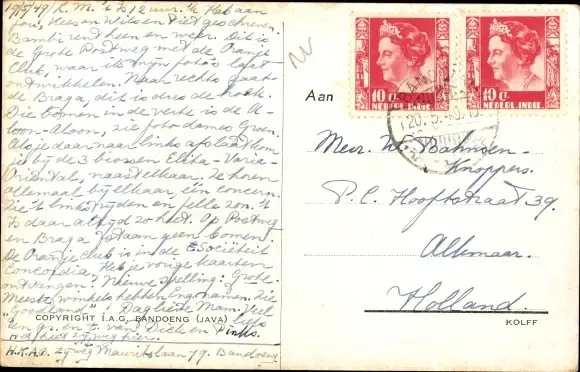 19/5'49 K.M. 't Is 12 uur. 'k Heb aan
Jani, Kees en Wil en Piet geschreven.
Bambi rent heen en weer. Dit is
de Grote Postweg met de Oranje
Club, waar ik mijn foto's laat
ontwikkelen. Naar rechts gaat
de Braga, dit is dus de hoek.
Die bomen in de verte is de A-
loon-Aloon, zie foto dames Groen.
Als je daar naar links afslaat kom
je bij de 3 bioscen Elita-Varia-
Oriental, naast elkaar. Ze horen
allemaal bij elkaar, één concern.
Zie 't links rijden en felle zon. 't
Is daar altijd zo heet. Op Postweg
en Braga staan geen bomen.
De Oranje club is in de Sociëteit
Concordia. Heb je vorige kaarten
ontvangen. Nieuwe spelling: Grote.
Meeste winkels hebben Eng. namen. Zie
"Goodland". Dag lieve Mam. Veel liefs
en gr. en z. van Dick en Pinks.
H.K.A.Q. zijweg Mauritslaan 79. Bandoeng
COPYRIGHT I.A.G. BANDOENG (JAVA)
Aan
10 ct
NEDERL. INDIE
10 ct
NEDERL. INDIE
20.5.
Mevr. W. Bahnsen-
Knoppers.
P.C. Hooftstraat 39.
Alkmaar.
Holland.
KOLFF